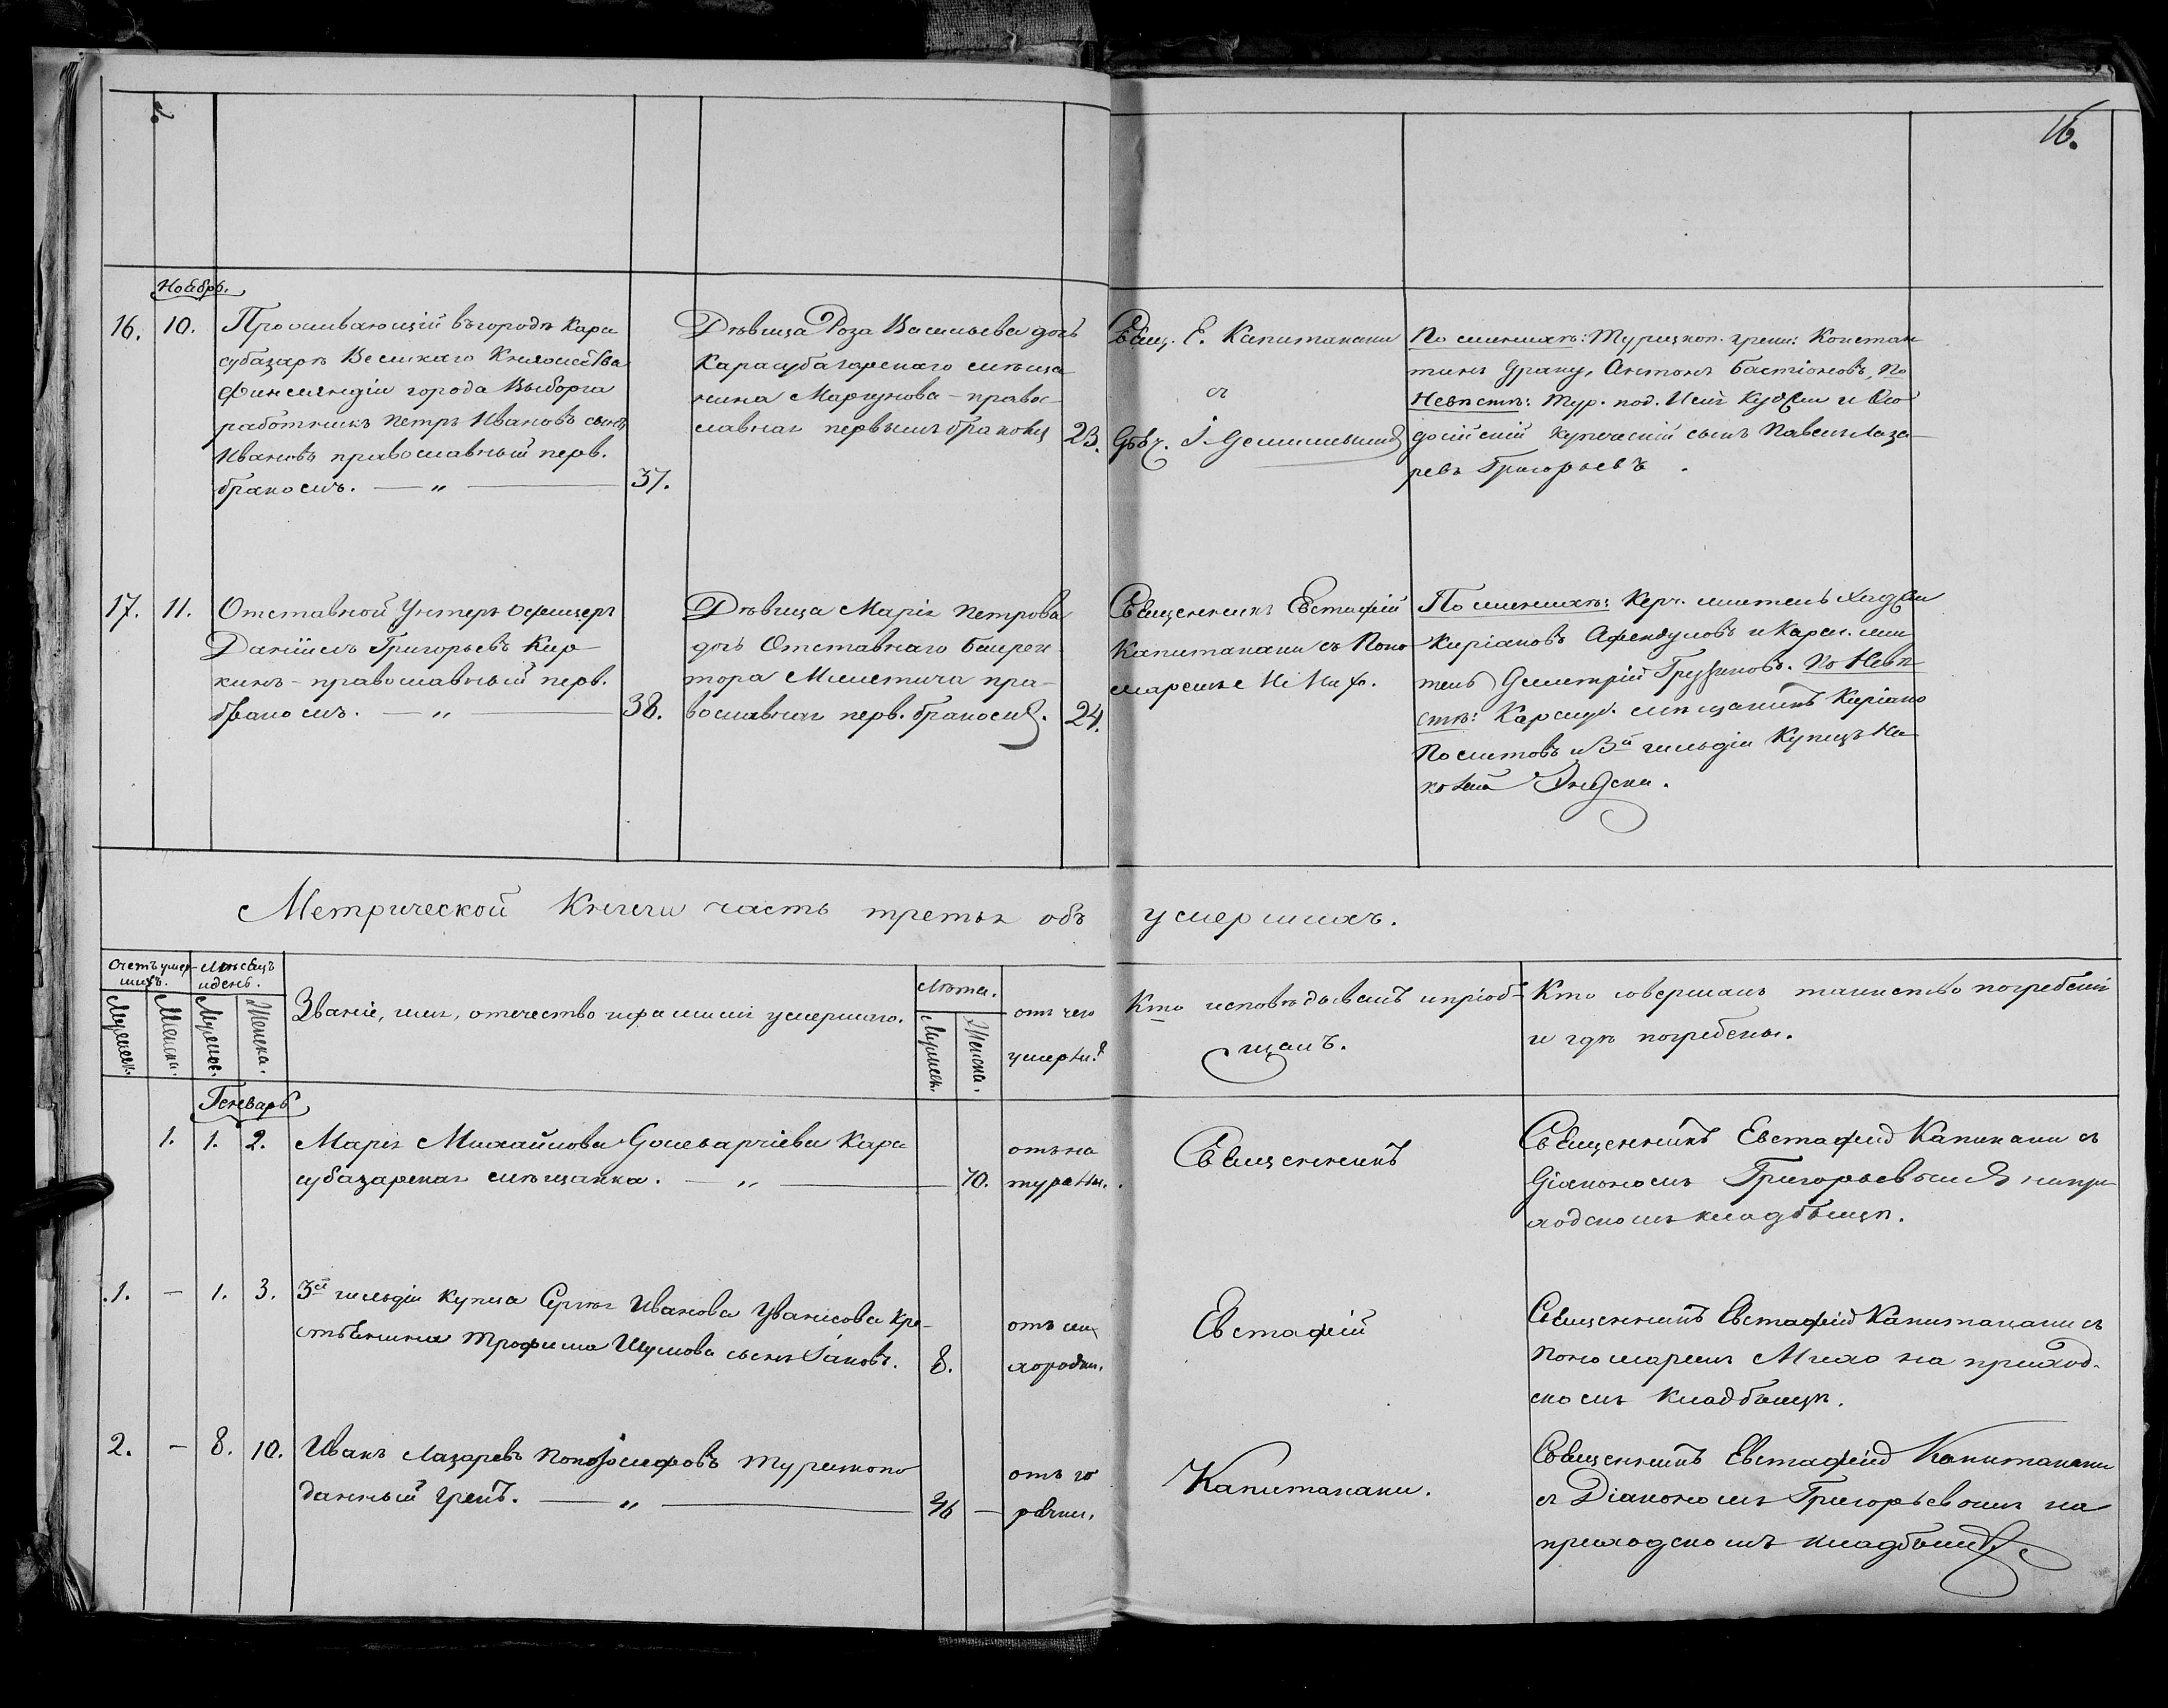 16.
Ноябрь.
16. 10. Проживающій въ городѣ Кара
субазарѣ Великаго Княжества
Финляндіи города Выборга
работникъ Петръ Ивановъ сынъ
Ивановъ православный перв.
бракомъ. — „ — 37.
Дѣвица Роза Васильева дочь
Карасубазарскаго мѣща
нина Маргунова - право
славная первымъ бракомъ 23.
Свящ. Е. Капитанаки
съ
По женихѣ: Турецкоп. греки: Констан
тинъ Драку, Антонъ Бастіоновъ, По
Невѣстѣ: Тур. под. Илій и Ѳео
досійскій купеческій сынъ Павелъ Лаза
ревъ Григорьевъ.
17. 11. Отставной Унтеръ офицеръ
Даніилъ Григорьевъ Кир
кинъ - православный перв.
бракомъ. — „ — 38.
Дѣвица Марія Петрова
дочь Отставнаго
православная перв. бракомъ. 24.
Священникъ Евстафій
Капитанаки съ Поно
маремъ
По женихѣ: Керч. житель
Киріаковъ Афендуловъ и Карас. жи
тель Деметрій Грузиновъ. По Невѣ
стѣ: Карасуб. мѣщанинъ Киріако
и 3й гильдіи Купецъ Ни
колай
Метрической Книги часть третья объ умершихъ.
Счетъ умер
шихъ.
Мѣсяцъ
и день.
Званіе, имя, отечество и фамилія умершаго.
Лѣта.
отъ чего
умерли?
Кто исповѣдывалъ и пріоб
щалъ.
Кто совершалъ таинство погребенія
и гдѣ погребены.
Мужеск. Женска. Мужеск. Женска.
Мужеск. Женска.
Генварь
1. 1. 2. Марія Михайлова Кара
субазарская мѣщанка. — „ — 70.
отъ на
туральн.
Священникъ
Священникъ Евстафій Капикаки съ
Діакономъ Григорьевымъ на при
ходскомъ кладбищѣ.
1. — 1. 3. 3й гильдіи купца Сергѣя Иванова Уванисова кре
стьянина Трофима Шумова сынъ Іаковъ. 8.
отъ ли
хорадки.
Евстафій
Священникъ Евстафій Капитанаки съ
Пономаремъ Михо на приход
скомъ кладбищѣ.
2. — 8. 10. Иванъ Лазаревъ Турецкопо
данный Грекъ. — „ — 46 —
отъ го
рячки.
Капитанаки.
Священникъ Евстафій Капитанаки
съ Діакономъ Григорьевымъ на
приходскомъ кладбищѣ